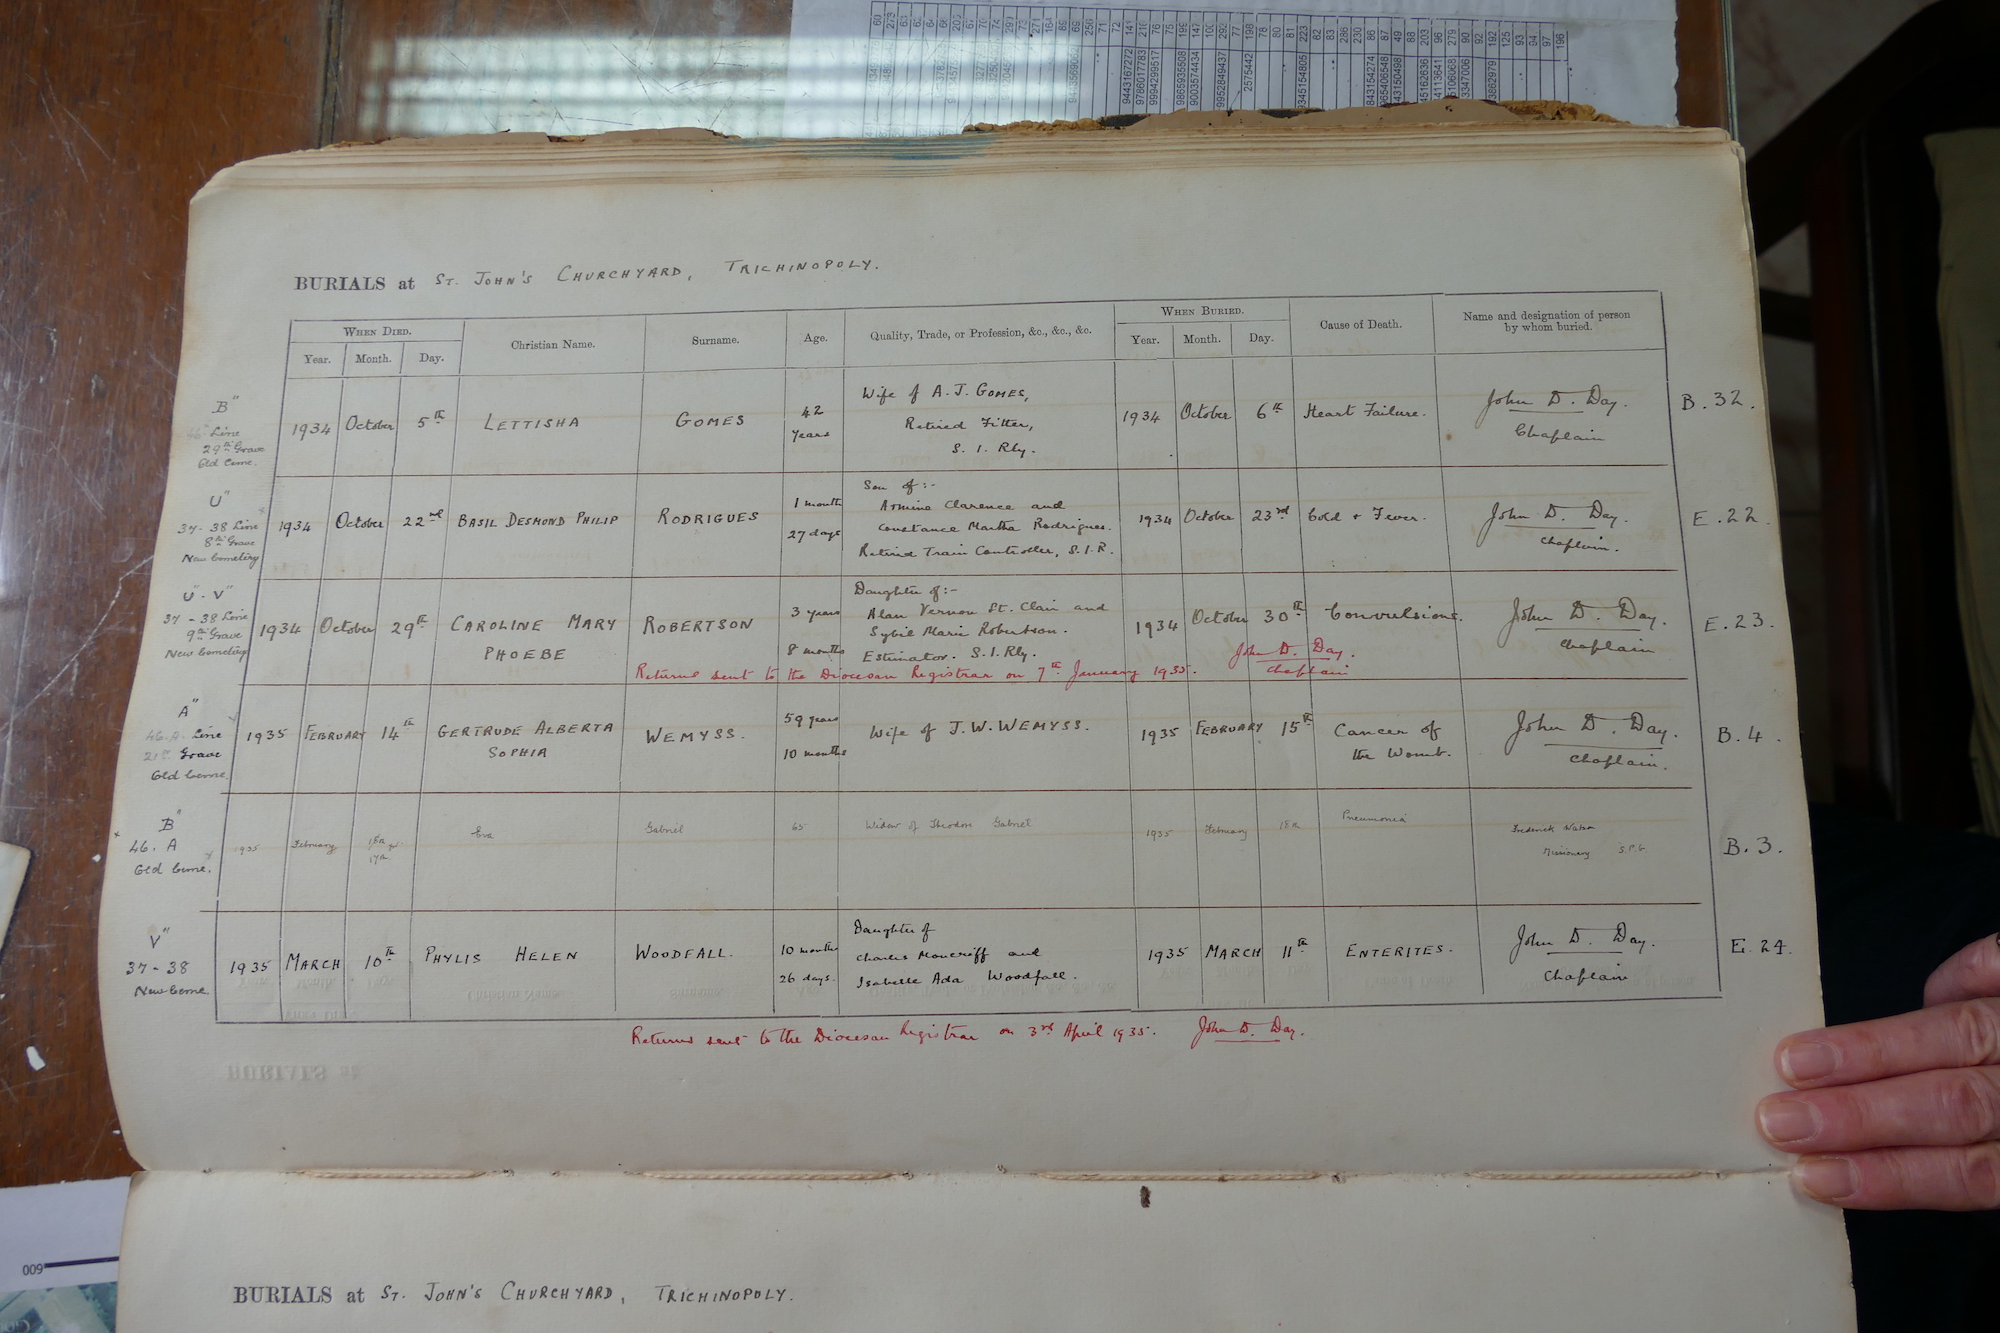 BURIALS at ST. JOHN'S CHURCHYARD, TRICHINOPOLY.
WHEN DIED. Christian Name. Surname. Age. Quality, Trade, or Profession, &c., &c., &c. WHEN BURIED. Cause of Death. Name and designation of person by whom buried.
Year. Month. Day. Year. Month. Day.
B"
46 Line
29th Grave
Old Ceme.
1934 October 5th LETTISHA GOMES 42 Years
Wife of A. J. GOMES,
Retired Fitter,
S. I. Rly.
1934 October 6th Heart Failure. John D. Day. Chaplain B. 32.
U"
37-38 Line
8th Grave
New Cemetery
1934 October 22nd BASIL DESMOND PHILIP RODRIGUES 1 month 27 days
Son of:-
Armine Clarence and
Constance Martha Rodrigues.
Retired Train Controller, S.I.R.
1934 October 23rd Cold + Fever. John D. Day. Chaplain. E. 22.
U - V"
37-38 Line
9th Grave
New Cemetery
1934 October 29th CAROLINE MARY PHOEBE ROBERTSON 3 years 8 months
Daughter of:-
Alan Vernon St. Clair and
Sybil Marie Robertson.
Estimator. S.I.Rly.
1934 October 30th Convulsions. John D. Day. Chaplain E. 23.
Returns sent to the Diocesan Registrar on 7th January 1935. John D. Day. Chaplain
A"
46.A. Line
21st Grave
Old Ceme.
1935 FEBRUARY 14th GERTRUDE ALBERTA SOPHIA WEMYSS. 59 years 10 months
Wife of J. W. WEMYSS.
1935 FEBRUARY 15th Cancer of the Womb. John D. Day. Chaplain. B. 4.
B"
46. A
Old Ceme.
1935 February 17th Eva Gabriel 65
Widow of Theodore Gabriel
1935 February 18th Pneumonia Frederick Missionary S.P.G B. 3.
V"
37-38
New Ceme.
1935 MARCH 10th PHYLIS HELEN WOODFALL. 10 months 26 days.
Daughter of
Charles Moncrieff and
Isabelle Ada Woodfall.
1935 MARCH 11th ENTERITES. John D. Day. Chaplain E. 24.
Returns sent to the Diocesan Registrar on 3rd April 1935. John D. Day.
BURIALS at ST. JOHN'S CHURCHYARD, TRICHINOPOLY.
009